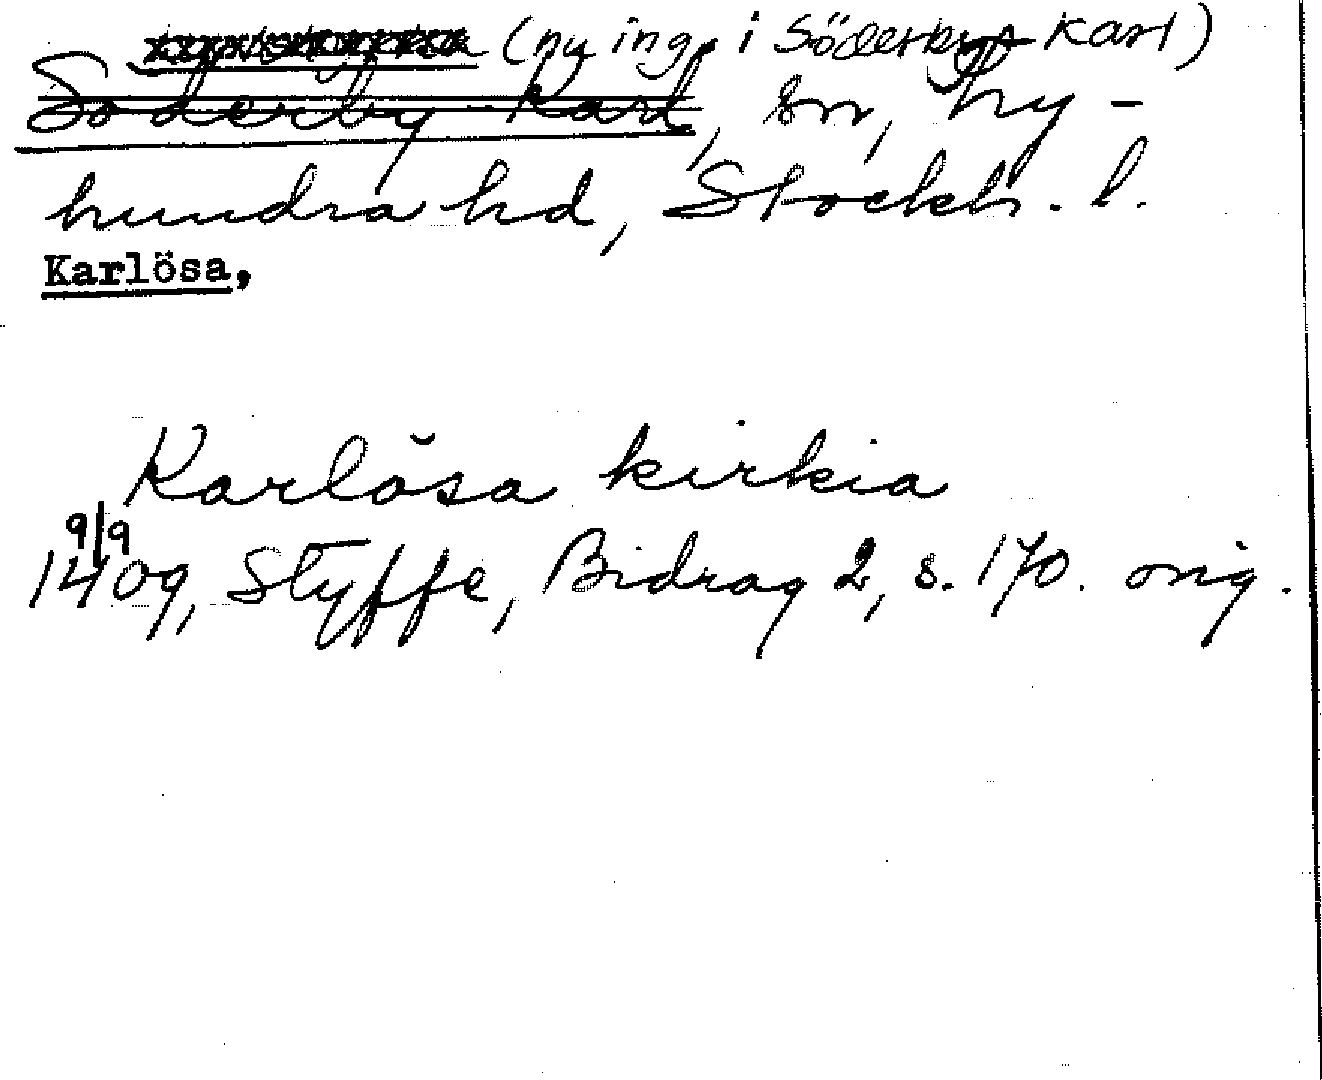 (ny ing. i Söderby-Karl)
Söderby-Karl, sn, Ly-
hundra hd, Stockh. l.
Karlösa,
Karlösa kirkia
9/9
1409, Styffe, Bidrag 2, s. 170. orig.